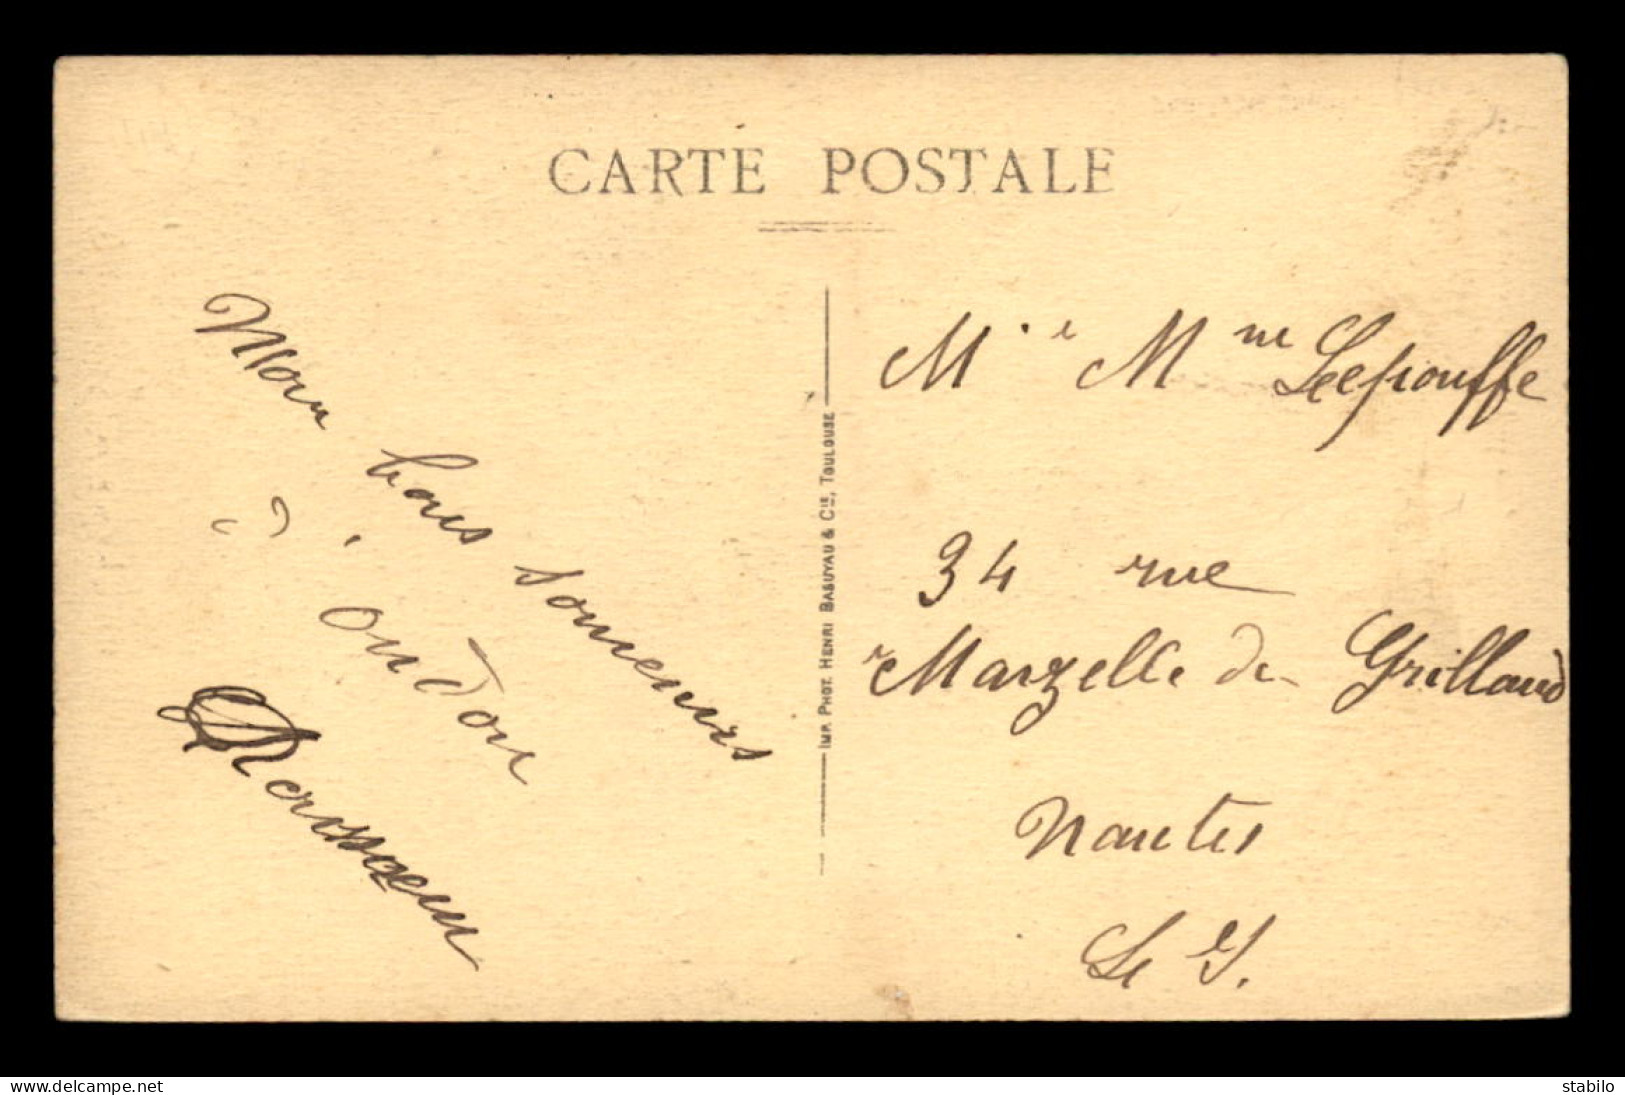 CARTE POSTALE
bons souvenirs
d'Oudon
IMP. PHOT. HENRI BASUYAU & CIE, TOULOUSE
M. e Mme
34 rue
Marzelle de Grillaud
Nantes
L. I.
www.delcampe.net
stabilo